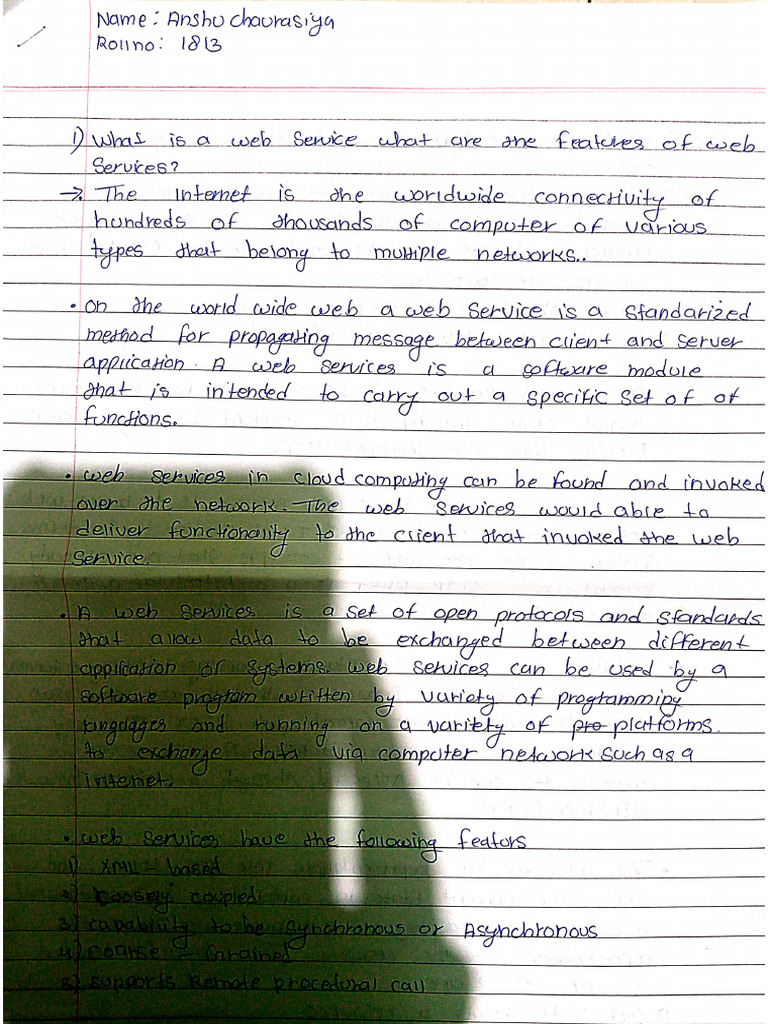 Name: Anshu chaurasiya
Rollno: 1813
1) What is a web Service what are the features of web
Services?
→ The Internet is the worldwide connectivity of
hundreds of thousands of computer of various
types that belong to multiple networks..
• on the world wide web a web service is a standarized
method for propagating message between client and server
application. A web services is a software module
that is intended to carry out a specific set of of
functions.
• web services in cloud computing can be found and invoked
over the network. The web services would able to
deliver functionality to the client that invoked the web
Service.
• A web services is a set of open protocols and standards
that allow data to be exchanged between different
application or systems. web services can be used by a
software program written by variety of programming
languages and running on a variety of pro platforms.
to exchange data via computer network such as a
internet.
• web services have the following feators
1) XML - based
2) Loosely coupled
3) capability to be synchronous or Asynchronous
4) coarse - Grained
5) supports Remote procedural call